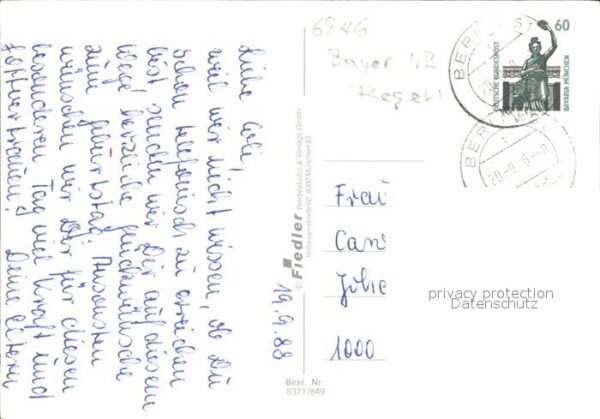 Liebe Cari,
weil wir nicht wissen, ob Du
schon telefonisch zu erreichen
bist senden wir Dir auf diesem
Wege herzliche Glückwünsche
zum Geburtstag! Ansonsten
wünschen wir Dir für diesen
besonderen Tag viel Kraft und
Gottvertrauen! Deine Eltern
19.9.88
© Fiedler Werbestudio & Verlags GmbH
8000 München 83
6946
Bayer NB
Regen
60
DEUTSCHE BUNDESPOST
BAVARIA MÜNCHEN
BERLIN
BERLIN
Frau
Joh
1000
privacy protection
Datenschutz
Best. Nr
8371/849